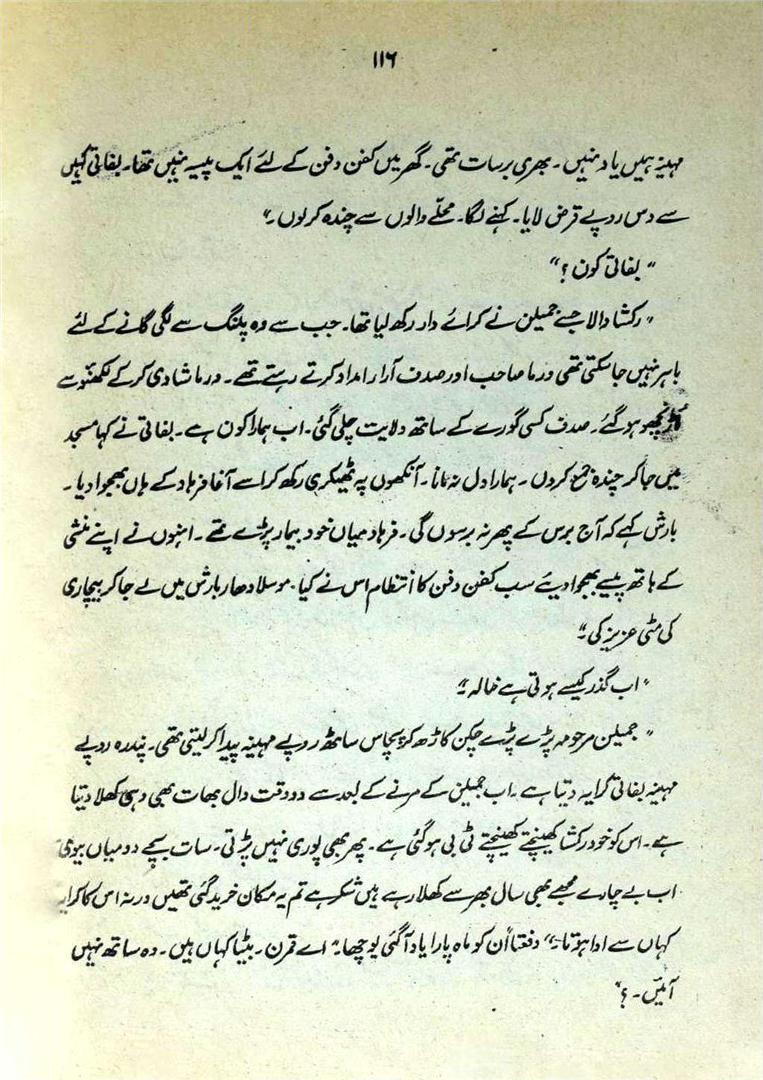 ۱۱۶
مہینہ ہمیں یاد نہیں۔ بھری برسات تھی۔ گھر میں کفن دفن کے لئے ایک پیسہ نہیں تھا۔ بفاتی کہیں
سے دس روپے قرض لایا۔ کہنے لگا۔ محلّے والوں سے چندہ کرلوں۔"
"بفاتی کون؟"
"رکشا والا جسے جمیلن نے کرائے دار رکھ لیا تھا۔ جب سے وہ پلنگ سے لگی گانے کے لئے
باہر نہیں جاسکتی تھی ورما صاحب اور صدف آرا امداد کرتے رہتے تھے۔ ورما شادی کرکے لکھنؤ سے
چھو ہوگئے۔ صدف کسی گورے کے ساتھ ولایت چلی گئی۔ اب ہمارا کون ہے۔ بفاتی نے کہا مسجد
میں جاکر چندہ جمع کردوں۔ ہمارا دل نہ مانا۔ آنکھوں پہ ٹھیکری رکھ کر اسے آغا فرہاد کے ہاں بھجوا دیا۔
بارش کہے کہ آج برس کے پھر نہ برسوں گی۔ فرہاد میاں خود بیمار پڑے تھے۔ انہوں نے اپنے منشی
کے ہاتھ پیسے بھجوا دیئے سب کفن دفن کا انتظام اس نے کیا۔ موسلا دھار بارش میں لے جاکر بیچاری
کی مٹی عزیز کی۔"
"اب گذر کیسے ہوتی ہے خالہ۔"
"جمیلن مرحومہ پڑے پڑے چکن کاڑھ کر پچاس ساٹھ روپے مہینہ پیدا کرلیتی تھی۔ پندرہ روپے
مہینہ بفاتی کرایہ دیتا ہے۔ اب جمیلن کے مرنے کے بعد سے دو وقت دال بھات بھی وہی کھلا دیتا
ہے۔ اس کو خود رکشا کھینچتے کھینچتے ٹی بی ہوگئی ہے۔ پھر بھی پوری نہیں پڑتی۔ سات بچے دو میاں بیوی
اب بے چارے مجھے بھی سال بھر سے کھلا رہے ہیں شکر ہے تم یہ مکان خرید گئی تھیں ورنہ اس کا کرایہ
کہاں سے ادا ہوتا۔" دفعتاً اُن کو ماہ پارا یاد آگئی پوچھا۔ "اے قمرن۔ بٹیا کہاں ہیں۔ وہ ساتھ نہیں
آئیں۔؟"